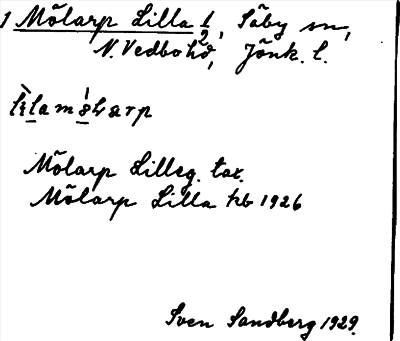 1 Mölarp Lilla 1/2, Säby sn,
N. Vedbo hd, Jönk. l.
Mölarp Lilleg. tax.
Mölarp Lilla kb 1926
Sven Sandberg 1929.